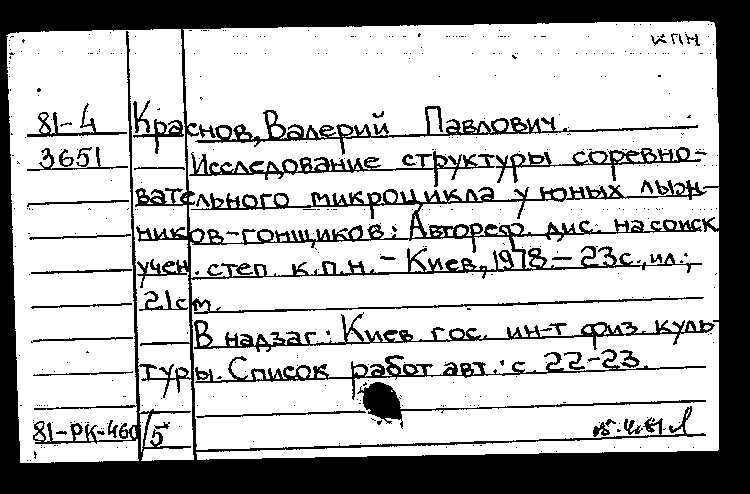 КПН
81-4 Краснов, Валерий Павлович.
3651 Исследование структуры соревно-
вательного микроцикла у юных лыж-
ников-гонщиков: Автореф. дис. на соиск.
учен. степ. к.п.н. - Киев, 1978. - 23 с., ил.;
21 см.
В надзаг.: Киев. гос. ин-т физ. куль-
туры. Список работ авт.: с. 22-23.
81-РК-460/5